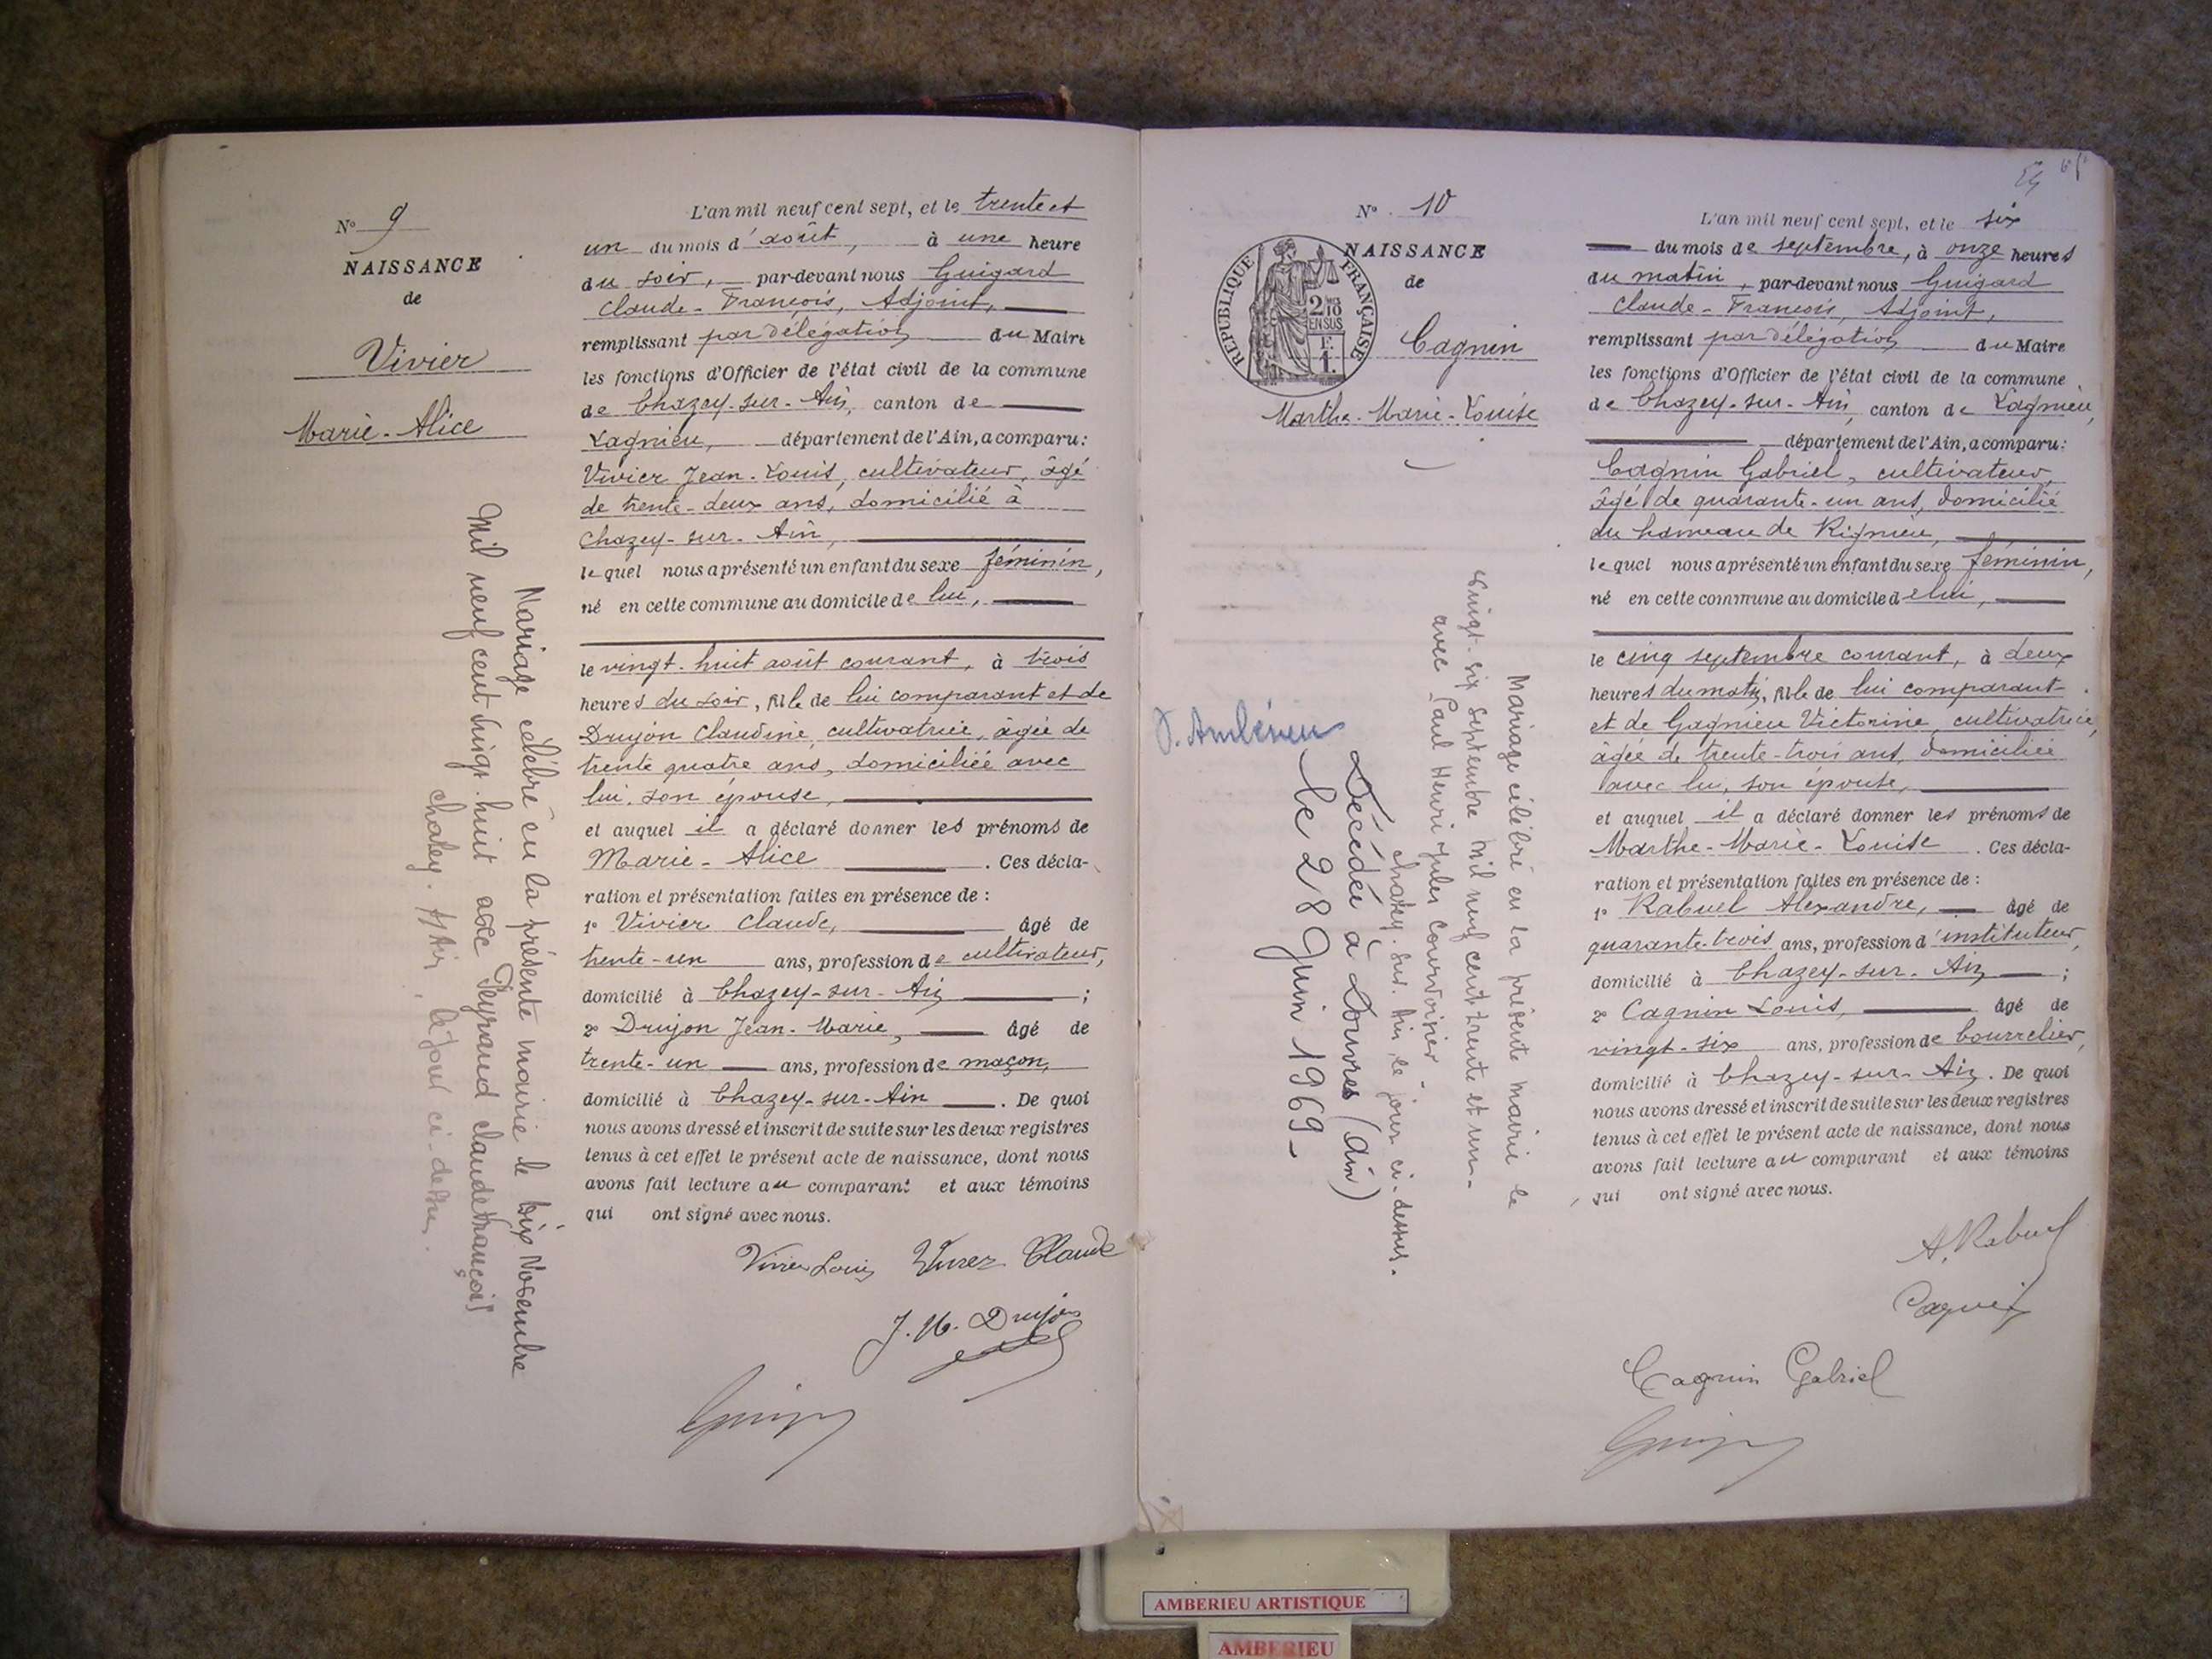 N° 9
NAISSANCE
de
Vivier
Marie-Alice
L'an mil neuf cent sept, et le trente et
un du mois d'août, à une heure
du soir, par-devant nous Guigard
Claude-François, Adjoint,
remplissant par délégation du Maire
les fonctions d'Officier de l'état civil de la commune
de Chazey-sur-Ain, canton de
Lagnieu, département de l'Ain, a comparu :
Vivier Jean-Louis, cultivateur, âgé
de trente-deux ans, domicilié à
Chazey-sur-Ain,
lequel nous a présenté un enfant du sexe féminin,
né en cette commune au domicile de lui,
le vingt-huit août courant, à trois
heures du soir, fille de lui comparant et de
Drujon Claudine, cultivatrice, âgée de
trente quatre ans, domiciliée avec
lui, son épouse,
et auquel il a déclaré donner les prénoms de
Marie-Alice. Ces décla-
ration et présentation faites en présence de :
1° Vivier Claude, âgé de
trente-un ans, profession de cultivateur,
domicilié à Chazey-sur-Ain ;
2° Drujon Jean-Marie, âgé de
trente-un ans, profession de maçon,
domicilié à Chazey-sur-Ain. De quoi
nous avons dressé et inscrit de suite sur les deux registres
tenus à cet effet le présent acte de naissance, dont nous
avons fait lecture au comparant et aux témoins
qui ont signé avec nous.
Vivier Louis Vivier Claude
J. M. Drujon
Mariage célébré en la présente mairie le six Novembre
Mil neuf cent vingt-huit avec Peyraud Claude François
Chazey s/ Ain, le jour ci-dessus.
65
N° 10
NAISSANCE
de
REPUBLIQUE FRANÇAISE
2/10
EN SUS
1F.
Cagnin
Marthe-Marie-Louise
L'an mil neuf cent sept, et le six
du mois de septembre, à onze heures
du matin, par-devant nous Guigard
Claude-François, Adjoint,
remplissant par délégation du Maire
les fonctions d'Officier de l'état civil de la commune
de Chazey-sur-Ain, canton de Lagnieu,
département de l'Ain, a comparu :
Cagnin Gabriel, cultivateur,
âgé de quarante-un ans, domicilié
au hameau de Rignieu,
lequel nous a présenté un enfant du sexe féminin,
né en cette commune au domicile de lui,
le cinq septembre courant, à deux
heures du matin, fille de lui comparant
et de Gagnieu Victorine, cultivatrice,
âgée de trente-trois ans, domiciliée
avec lui, son épouse,
et auquel il a déclaré donner les prénoms de
Marthe-Marie-Louise. Ces décla-
ration et présentation faites en présence de :
1° Rabuel Alexandre, âgé de
quarante-trois ans, profession d'instituteur,
domicilié à Chazey-sur-Ain ;
2° Cagnin Louis, âgé de
vingt-six ans, profession de bourrelier,
domicilié à Chazey-sur-Ain. De quoi
nous avons dressé et inscrit de suite sur les deux registres
tenus à cet effet le présent acte de naissance, dont nous
avons fait lecture au comparant et aux témoins
qui ont signé avec nous.
A. Rabuel
Cagnin
Cagnin Gabriel
Mariage célébré en la présente mairie le
vingt-six septembre mil neuf cent trente et un
avec Paul Henri Jules Courvoisier
Chazey-sur-Ain, le jour ci-dessus.
Décédée à Douvres (Ain)
le 28 Juin 1969
D. Ambérieu
AMBERIEU ARTISTIQUE
AMBERIEU